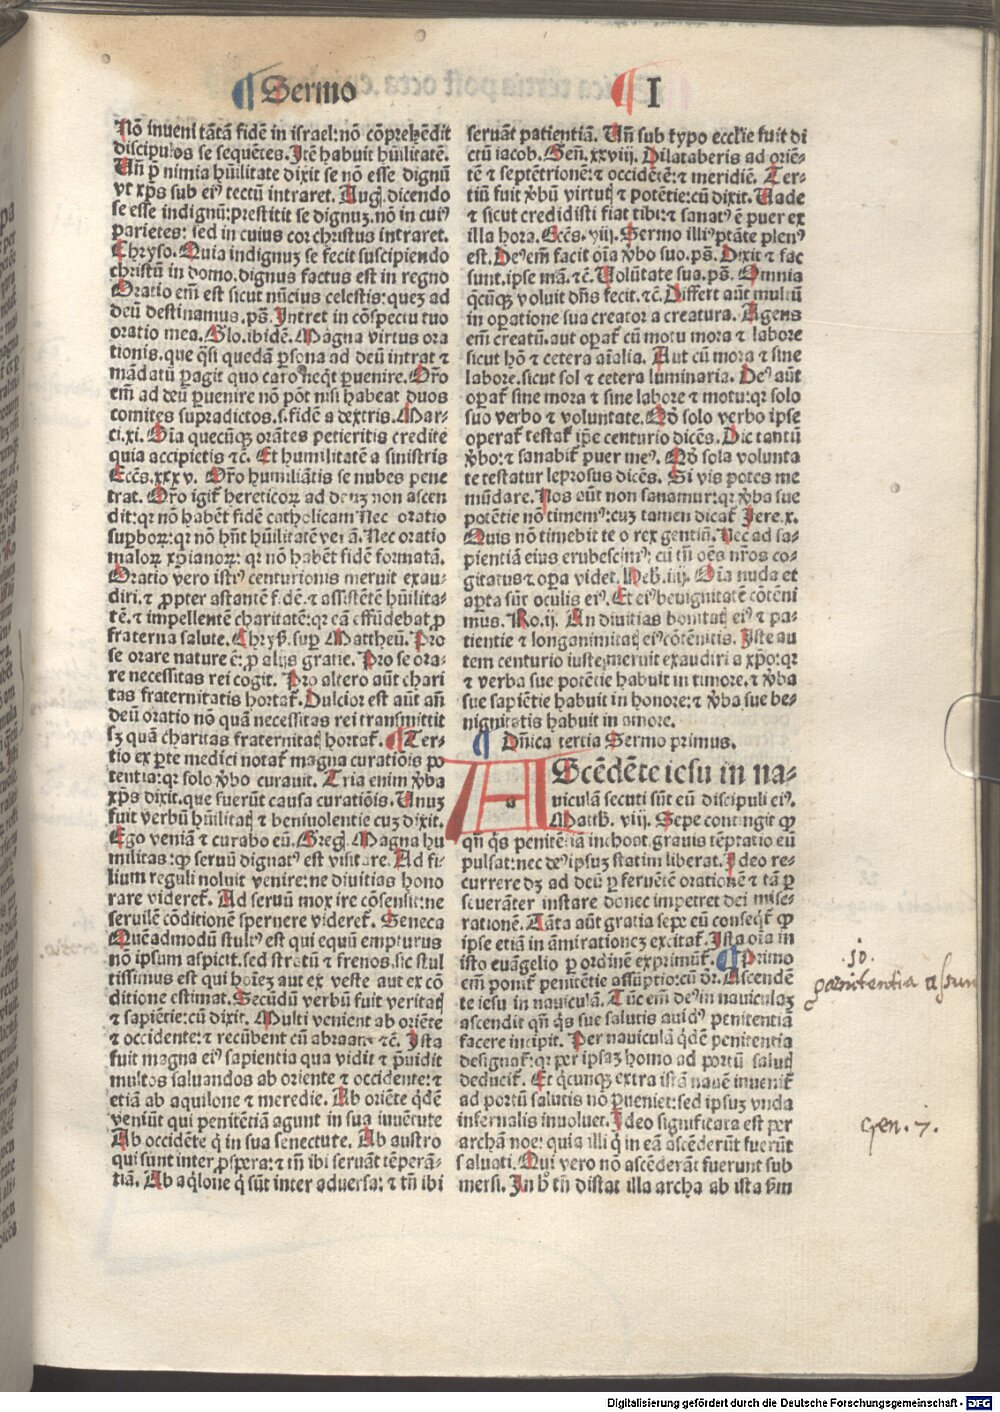 Sermo I
Nō inveni tātā fidē in israel: nō cōprehēdit
discipulos se sequētes. Itē habuit hūilitatē.
Uñ p̱ nimia hūilitate dixit se nō esse dignū
vt xp̄s sub eiꝰ tectū intraret. Aug. dicendo
se esse indignū: prestitit se dignuʒ. nō in cuiꝰ
parietes: sed in cuius cor christus intraret.
Chryso. Quia indignuʒ se fecit suscipiendo
christū in domo. dignus factus est in regno
Oratio em̄ est sicut nūcius celestis: queʒ ad
deū destinamus. ps̄. Intret in cōspectu tuo
oratio mea. Glo. ibidē. Magna virtus ora
tionis. que q̄si quedā p̱sona ad deū intrat ⁊
mādatū p̱agit quo caro neq̇t p̱uenire. Or̄o
em̄ ad deū p̱uenire nō pōt nisi habeat duos
comites supradictos. s. fidē a dextris. Mar-
ci. xi. Oīa quecūqꝫ orātes petieritis credite
quia accipietis ⁊c̄. Et humilitatē a sinistris
Eccēs. xxxv. Or̄o humiliātis se nubes pene
trat. Or̄o igit̄ hereticoꝝ ad deuʒ non ascen
dit: qꝛ nō habēt fidē catholicam Nec oratio
sup̱boꝝ: qꝛ nō hn̄t hūilitatē verā. Nec oratio
maloꝝ xp̄ianoꝝ: qꝛ nō habēt fidē formatā.
Oratio vero istiꝰ centurionis meruit exau-
diri. ⁊ ꝓpter astantē fidē. ⁊ assistētē hūilita-
tē. ⁊ impellentē charitatē: qꝛ eā effūdebat ꝓ
fraterna salute. Chryß. sup̱ Mattheū. Pro
se orare nature ē: ꝓ alijs gratie. Pro se ora-
re necessitas rei cogit. Pro altero aūt chari
tas fraternitatis hortat̄. Dulcior est aūt añ
deū oratio nō quā necessitas rei transmittit
sʒ quā charitas fraternitatꝭ hortat̄. Ter-
tio ex ꝑte medici notat̄ magna curatiōis po
tentia: qꝛ solo v̄bo curauit. Tria enim v̄ba
xp̄s dixit. que fuerūt causa curatiōis. Unuʒ
fuit verbū hūilitatꝭ ⁊ beniuolentie cuʒ dixit.
Ego veniā ⁊ curabo eū. Greg. Magna hu
militas: qꝫ seruū dignatꝰ est visitare. Ad fi-
lium reguli noluit venire: ne diuitias hono
rare videret̄. Ad seruū mox ire cōsensit: ne
seruilē cōditionē spernere videret̄. Seneca
Quēadmodū stultꝰ est qui equū empturus
nō ipsum aspicit. sed stratū ⁊ frenos. sic stul
tissimus est qui hoīeʒ aut ex veste aut ex cō
ditione estimat. Secūdū verbū fuit veritatꝭ
⁊ sapiētie: cū dixit. Multi venient ab oriēte
⁊ occidente: ⁊ recūbent cū abraam ⁊c̄. Ista
fuit magna eiꝰ sapientia qua vidit ⁊ p̄uidit
multos saluandos ab oriente ⁊ occidente: ⁊
etiā ab aquilone ⁊ meredie. Ab oriēte q̇dē
veniūt qui penitētiā agunt in sua iuuētute
Ab occidēte q̇ in sua senectute. Ab austro
qui sunt inter ꝓspera: ⁊ tn̄ ibi seruāt tēperā-
tiā. Ab aq̇lone q̇ sūt inter aduersa: ⁊ tn̄ ibi
seruāt patientiā. Uñ sub typo eccl̄ie fuit di
ctū iacob. Geñ. xxviij. Dilataberis ad oriē-
tē ⁊ septētrionē: ⁊ occidētē: ⁊ meridiē. Ter-
tiū fuit v̄bū virtutꝭ ⁊ potētie: cū dixit. Uade
⁊ sicut credidisti fiat tibi: ⁊ sanatꝰ ē puer ex
illa hora. Eccēs. viij. Sermo illiꝰ p̱tāte plenꝰ
est. Deꝰ em̄ facit oīa v̄bo suo. ps̄. Dixit ⁊ fac
sunt. ipse mā. ⁊c̄. Uolūtate sua. ps̄. Omnia
q̄cūqꝫ voluit dn̄s fecit. ⁊c̄. Differt aūt multū
in op̱atione sua creator a creatura. Agens
em̄ creatū. aut op̱at̄ cū motu mora ⁊ labore
sicut hō ⁊ cetera aīalia. Aut cū mora ⁊ sine
labore. sicut sol ⁊ cetera luminaria. Deꝰ aūt
op̱at̄ sine mora ⁊ sine labore ⁊ motu: qꝛ solo
suo verbo ⁊ voluntate. Qꝺ̄ solo verbo ipse
operat̄ testat̄ ip̄e centurio dicēs. Dic tantū
v̄bo: ⁊ sanabit̄ puer meꝰ. Qꝺ̄ sola volunta
te testatur leprosus dicēs. Si vis potes me
mūdare. Nos aūt non sanamur: qꝛ v̄ba sue
potētie nō timemꝰ: cuʒ tamen dicat̄ Jere. x.
Quis nō timebit te o rex gentiū. Nec ad sa-
pientiā eius erubescimꝰ: cū tn̄ oēs nr̄os co-
gitatus ⁊ op̱a videt. Heb. iiij. Oīa nuda et
ap̱ta sūt oculis eiꝰ. Et eiꝰ benignitatē cōtēni
mus. Ro. ij. An diuitias bonitatꝭ eiꝰ ⁊ pa-
tientie ⁊ longanimitatꝭ eiꝰ cōtēnitis. Iste au
tem centurio iuste meruit exaudiri a xp̄o: qꝛ
⁊ verba sue potētie habuit in timore. ⁊ v̄ba
sue sapiētie habuit in honore: ⁊ v̄ba sue be-
nignitatis habuit in amore.
Dn̄ica tertia Sermo primus.
AScēdēte iesu in na-
uiculā secuti sūt eū discipuli eiꝰ.
Matth. viij. Sepe contingit qꝫ
qn̄ q̇s penitētiā inchoat. grauis tēptatio eū
pulsat: nec deꝰ ipsuʒ statim liberat. Ideo re-
currere dʒ ad deū p̱ feruētē orationē ⁊ tā p̱
seuerāter instare donec impetret dei mise-
rationē. Tāta aūt gratia sepe eū conseqt̄ qꝫ
ipse etiā in āmirationeʒ excitat̄. Ista oīa in
isto euāgelio p̱ ordinē exprimūt̄. Primo
em̄ ponit̄ penitētie assūptio: cū dr̄. Ascendē
te iesu in nauiculā. Tūc em̄ deꝰ in nauiculaʒ
ascendit qn̄ q̇s sue salutis auidꝰ penitentiā
facere incipit. Per nauiculā q̇dē penitentia
designat̄: qꝛ per ipsaʒ homo ad portū salutꝭ
deducit̄. Et q̇cunqꝫ extra istā nauē inuenit̄
ad portū salutis nō p̱ueniet: sed ipsuʒ vnda
infernalis inuoluet. Ideo significata est per
archā noe: quia illi q̇ in eā ascēderūt fuerūt
saluati. Qui vero nō ascēderāt fuerunt sub
mersi. In hꝰ tn̄ distat illa archa ab ista ſm
poenitentia assum
Gen. 7.
Digitalisierung gefördert durch die Deutsche Forschungsgemeinschaft - DFG